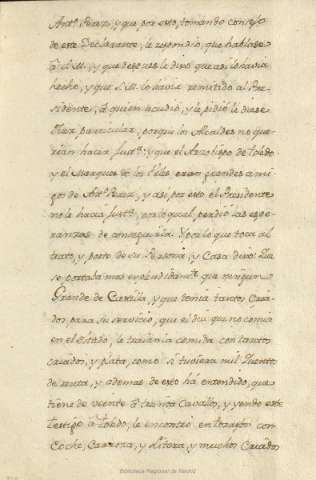 Ant.º Perez, y que por esto, tomando consejo
de este Declarante, le respondió, que hablase
à S.M., y que despues le dixo que así lo havia
hecho, y que S.M. lo havia remitido al Pre-
sidente, à quien acudió, y le pidió le diese
Juez particular, porque los Alcaldes no que-
rian hacer Just.ª y que el Arzobispo de Toledo
y el Marques de los Velez eran grandes ami-
gos de Ant.º Perez, y así por esto el Presidente
no le hacia Just.ª, por lo qual, perdió las espe-
ranzas de conseguirla. Y por lo que toca al
trato, y porte de su Persona, y Casa dixo: Que
se portaba mas esplendidam.te que ningun
Grande de Castilla, y que tenia tantos Cria-
dos para su servicio, que el dia que no comia
en el Estado, le trahian la comida con tantos
criados, y plata, como si tuviera mil Quentos
de renta, y ademas de esto há entendido, que
tiene de veinte à treinta Cavallos, y yendo este
Testigo à Toledo, le encontró en Torrejon con
Coche, Carroza, y Litera, y muchos Criados
Biblioteca Regional de Madrid